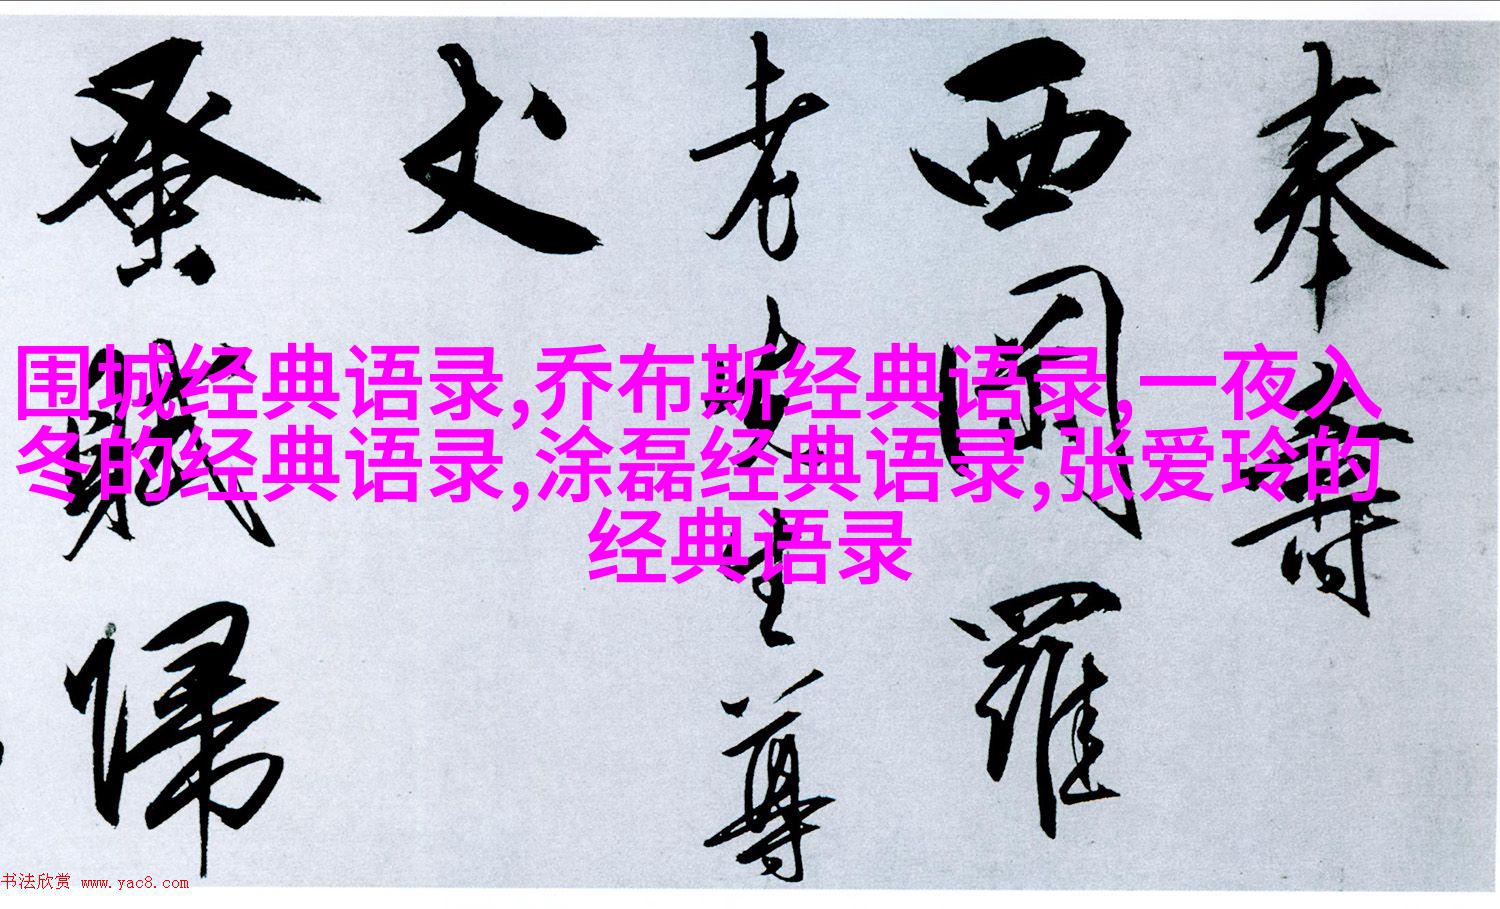 奉壽
西閣羅
老先生尊
丈
蚤賦歸
围城经典语录,乔布斯经典语录,一夜入
冬的经典语录,涂磊经典语录,张爱玲的
经典语录
书法欣赏 www.yac8.com